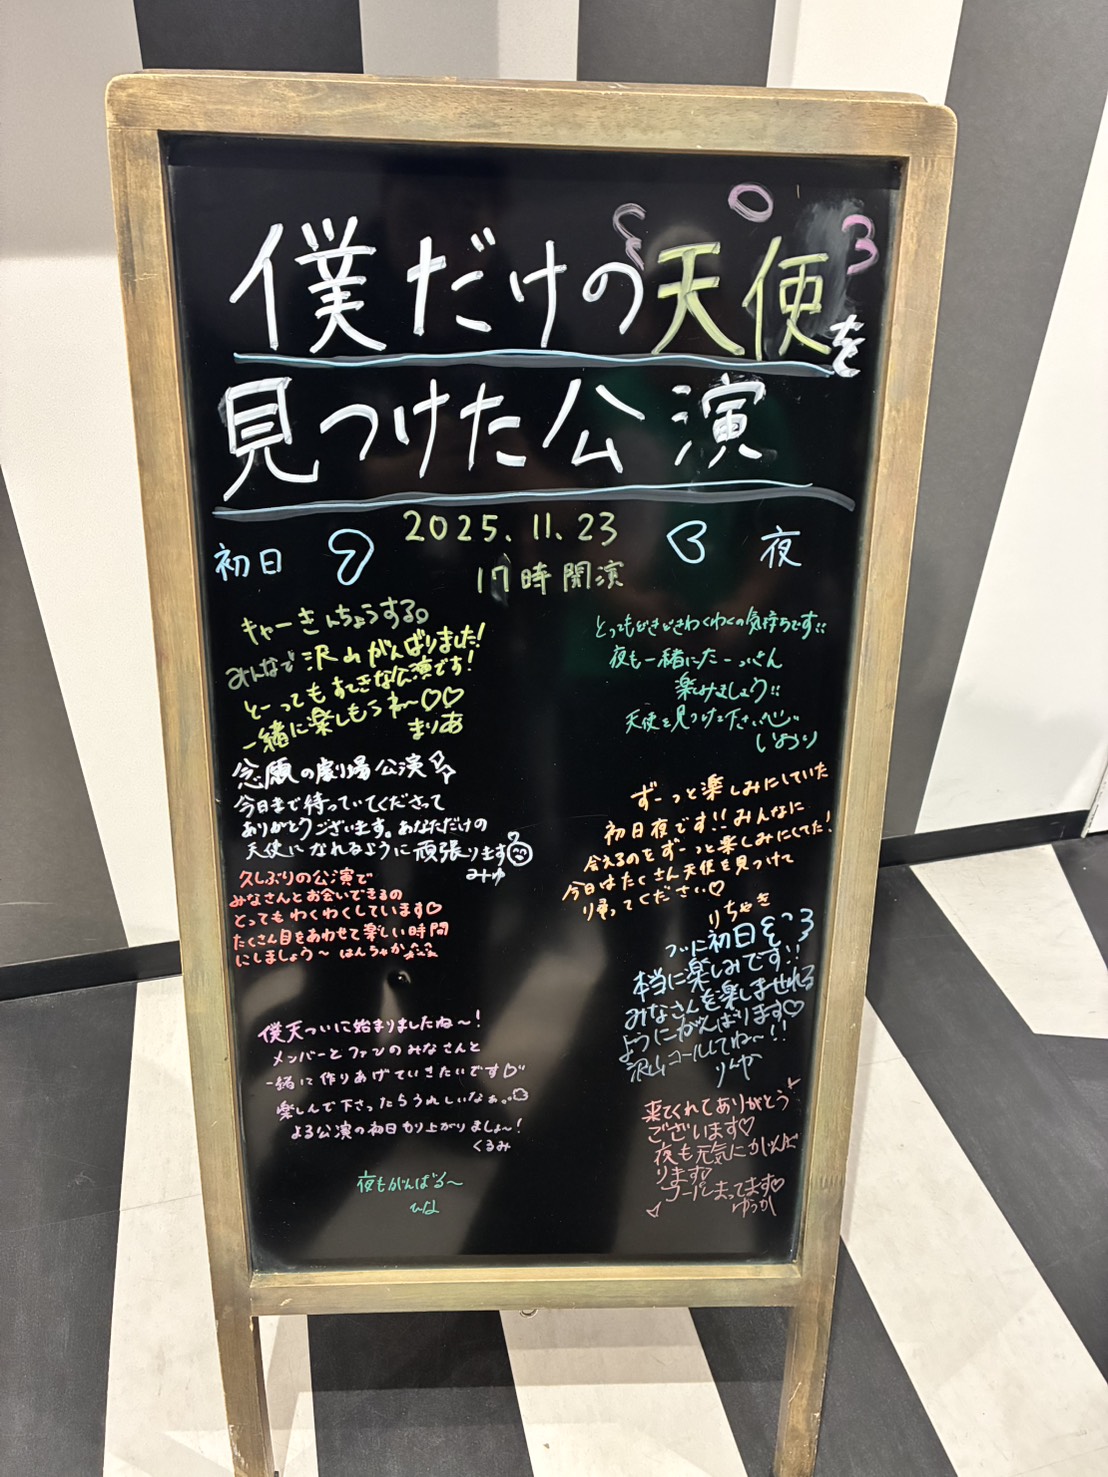 僕だけの天使を
見つけた公演
初日 2025.11.23 夜
17時開演
キャーきんちょうする。
みんなで沢山がんばりました!
とーってもすてきな公演です!
一緒に楽しもうね〜♡♡
まりあ
念願の劇場公演
今日まで待っていてくださって
ありがとうございます。あなただけの
天使になれるように頑張ります
みゆ
久しぶりの公演で
みなさんとお会いできるの
とってもわくわくしています♡
たくさん目をあわせて楽しい時間
にしましょう〜 はんちゃか
僕天ついに始まりましたね〜!
メンバーとファンのみなさんと
一緒に作りあげていきたいです♡
楽しんで下さったらうれしいなぁ。
よる公演の初日もり上がりましょ〜!
くるみ
夜もがんばる〜
ひな
とってもどきどきわくわくの気持ちです!!
夜も一緒にたーっくさん
楽しみましょう!!
天使を見つけて下さい
いおり
ずーっと楽しみにしていた
初日夜です!!みんなに
会えるのをずーっと楽しみにしてた!
今日はたくさん天使を見つけて
帰ってください♡
りちゃき
ついに初日を
本当に楽しみです!!
みなさんを楽しませれる
ようにがんばります♡
沢山コールしてね〜!!
りんか
来てくれてありがとう
ございます♡
夜も元気にがんば
ります♡
コールまってます♡
ゆうか